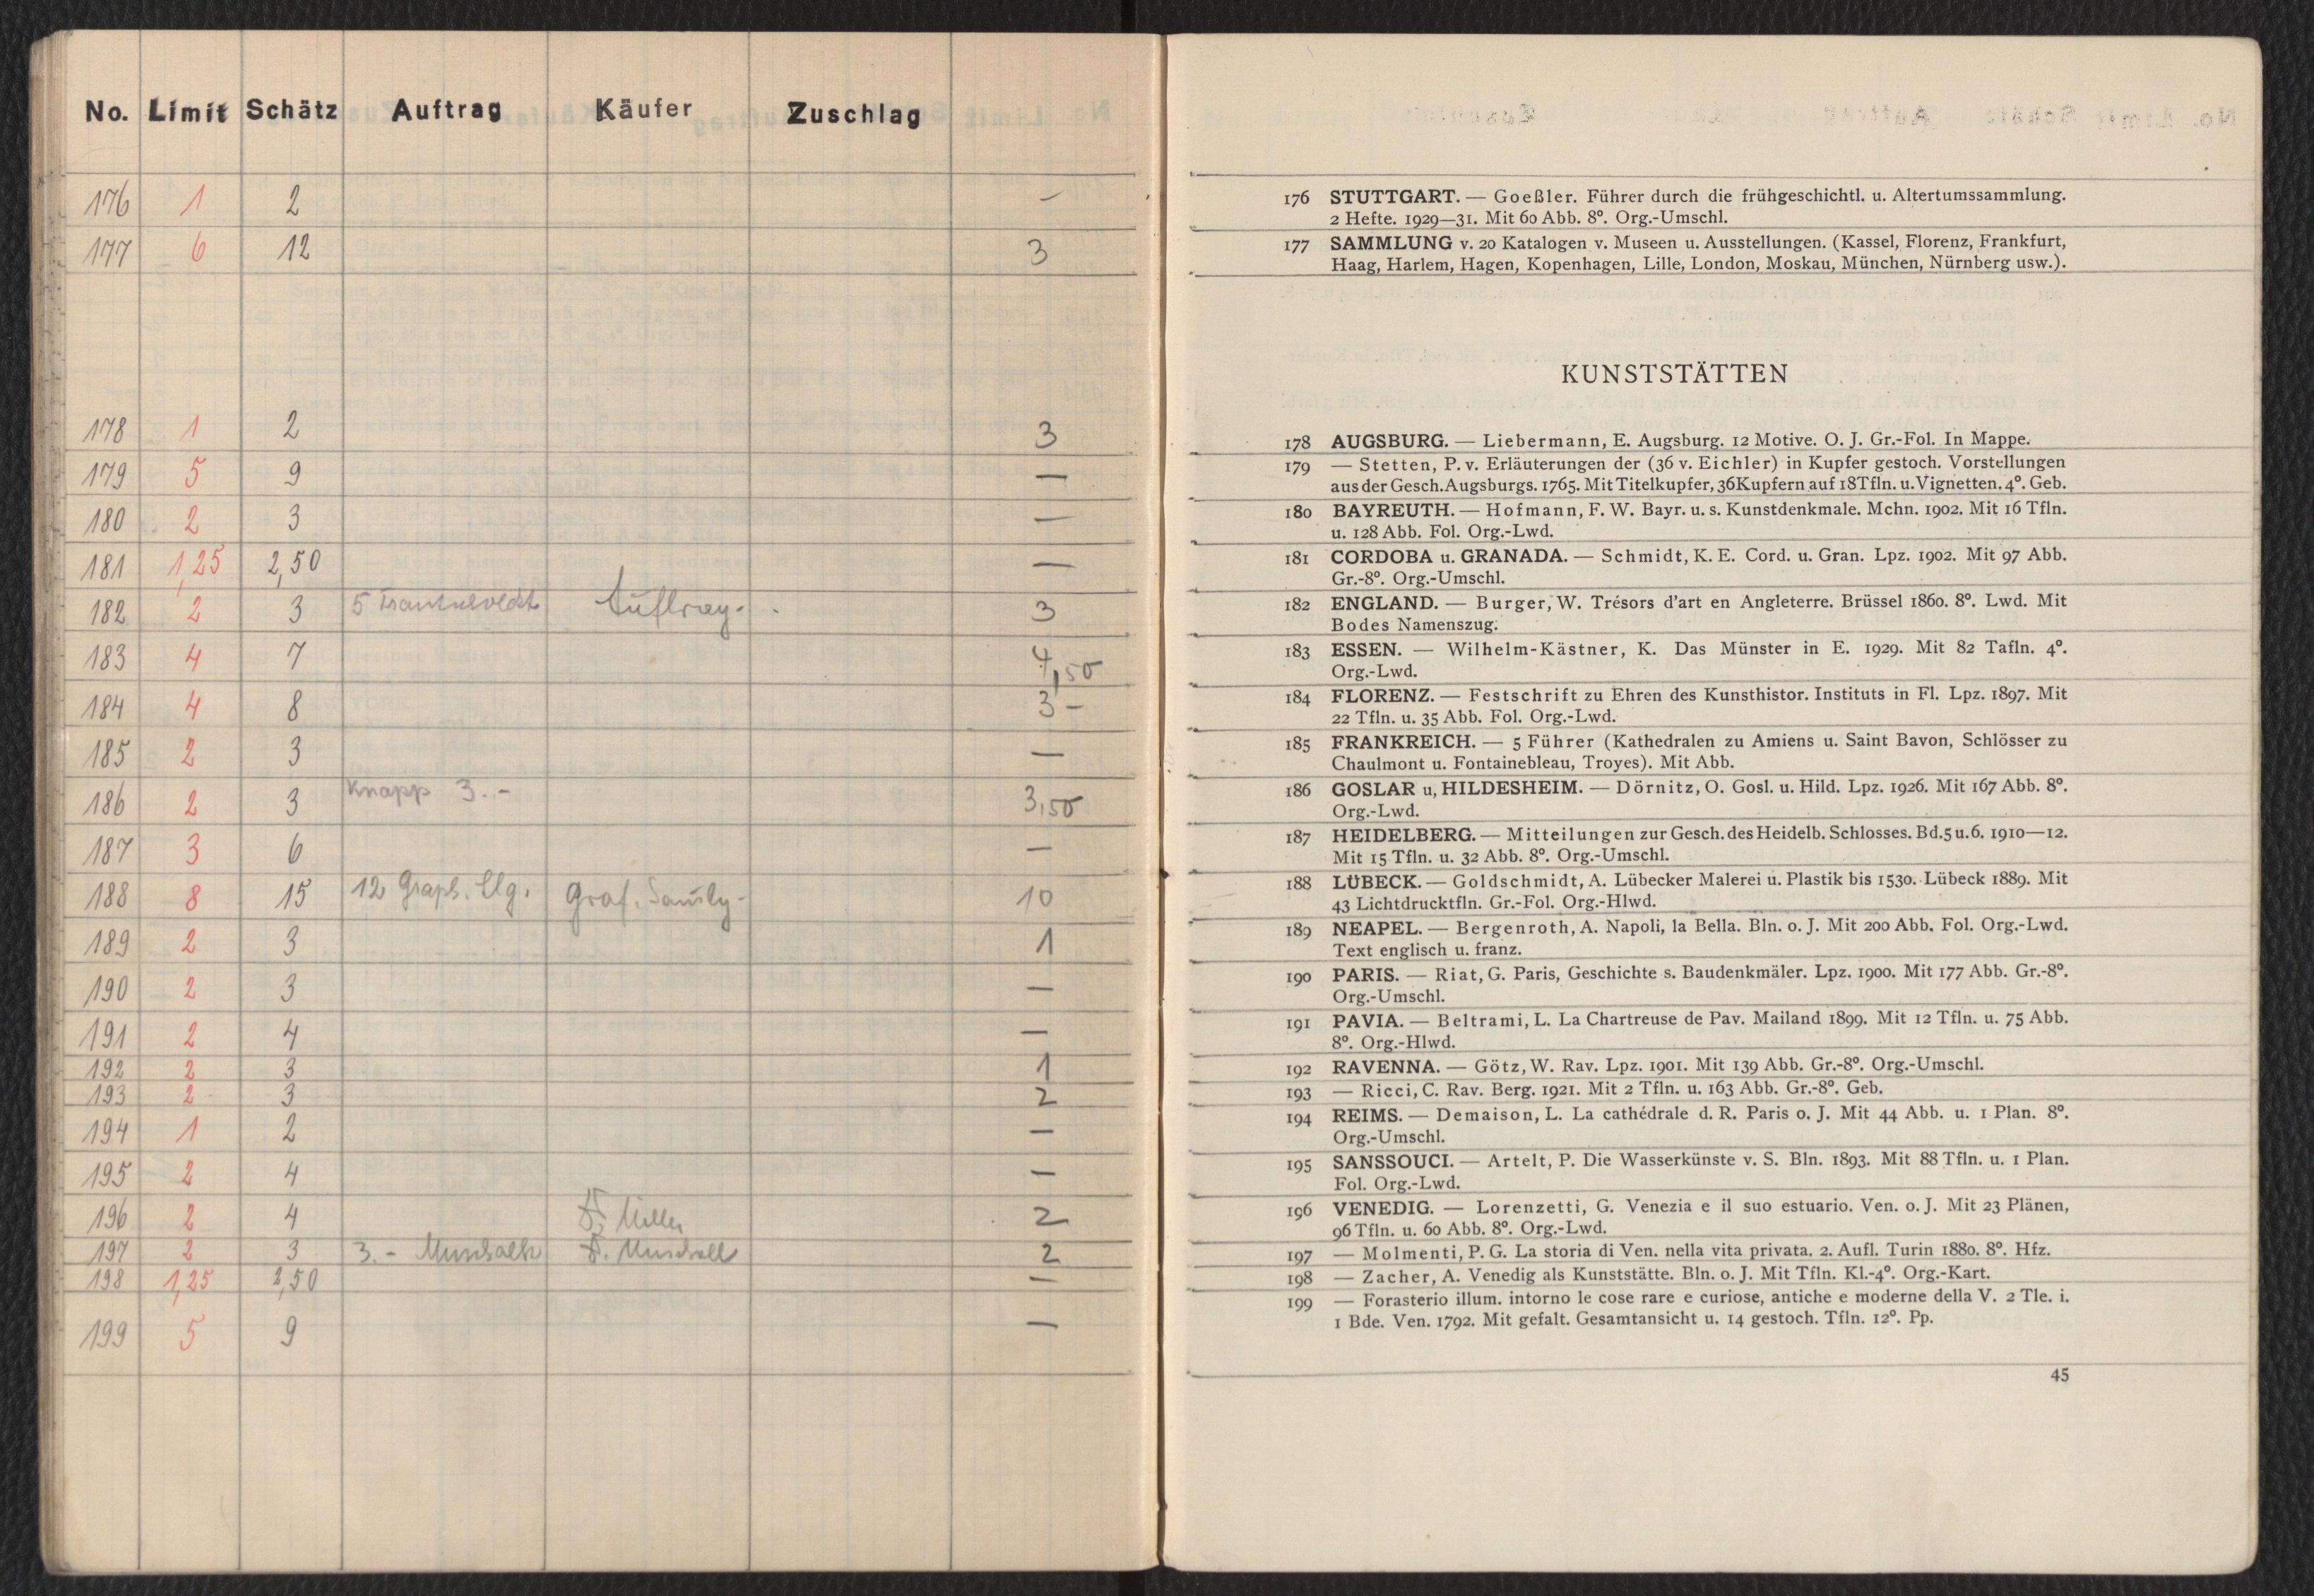 No. Limit Schätz Auftrag Käufer Zuschlag
176 1 2 —
177 6 12 3
178 1 2 3
179 5 9 —
180 2 3 —
181 1,25 2,50 —
182 2 3 5 Auftrag. 3
183 4 7 4,50
184 4 8 3 –
185 2 3 —
186 2 3 Knapp 3.– 3,50
187 3 6 —
188 8 15 12 Graph. Slg. Graf. 10
189 2 3 1
190 2 3 —
191 2 4 —
192 2 3 1
193 2 3 2
194 1 2 —
195 2 4 —
196 2 4 2
197 2 3 3.– 2
198 1,25 2,50 —
199 5 9 —
176 STUTTGART. — Goeßler. Führer durch die frühgeschichtl. u. Altertumssammlung.
2 Hefte. 1929—31. Mit 60 Abb. 8°. Org.-Umschl.
177 SAMMLUNG v. 20 Katalogen v. Museen u. Ausstellungen. (Kassel, Florenz, Frankfurt,
Haag, Harlem, Hagen, Kopenhagen, Lille, London, Moskau, München, Nürnberg usw.).
KUNSTSTÄTTEN
178 AUGSBURG. — Liebermann, E. Augsburg. 12 Motive. O. J. Gr.-Fol. In Mappe.
179 — Stetten, P. v. Erläuterungen der (36 v. Eichler) in Kupfer gestoch. Vorstellungen
aus der Gesch. Augsburgs. 1765. Mit Titelkupfer, 36 Kupfern auf 18 Tfln. u. Vignetten. 4°. Geb.
180 BAYREUTH. — Hofmann, F. W. Bayr. u. s. Kunstdenkmale. Mchn. 1902. Mit 16 Tfln.
u. 128 Abb. Fol. Org.-Lwd.
181 CORDOBA u. GRANADA. — Schmidt, K. E. Cord. u. Gran. Lpz. 1902. Mit 97 Abb.
Gr.-8°. Org.-Umschl.
182 ENGLAND. — Burger, W. Trésors d'art en Angleterre. Brüssel 1860. 8°. Lwd. Mit
Bodes Namenszug.
183 ESSEN. — Wilhelm-Kästner, K. Das Münster in E. 1929. Mit 82 Tafln. 4°.
Org.-Lwd.
184 FLORENZ. — Festschrift zu Ehren des Kunsthistor. Instituts in Fl. Lpz. 1897. Mit
22 Tfln. u. 35 Abb. Fol. Org.-Lwd.
185 FRANKREICH. — 5 Führer (Kathedralen zu Amiens u. Saint Bavon, Schlösser zu
Chaulmont u. Fontainebleau, Troyes). Mit Abb.
186 GOSLAR u, HILDESHEIM. — Dörnitz, O. Gosl. u. Hild. Lpz. 1926. Mit 167 Abb. 8°.
Org.-Lwd.
187 HEIDELBERG. — Mitteilungen zur Gesch. des Heidelb. Schlosses. Bd. 5 u. 6. 1910—12.
Mit 15 Tfln. u. 32 Abb. 8°. Org.-Umschl.
188 LÜBECK. — Goldschmidt, A. Lübecker Malerei u. Plastik bis 1530. Lübeck 1889. Mit
43 Lichtdrucktfln. Gr.-Fol. Org.-Hlwd.
189 NEAPEL. — Bergenroth, A. Napoli, la Bella. Bln. o. J. Mit 200 Abb. Fol. Org.-Lwd.
Text englisch u. franz.
190 PARIS. — Riat, G. Paris, Geschichte s. Baudenkmäler. Lpz. 1900. Mit 177 Abb. Gr.-8°.
Org.-Umschl.
191 PAVIA. — Beltrami, L. La Chartreuse de Pav. Mailand 1899. Mit 12 Tfln. u. 75 Abb.
8°. Org.-Hlwd.
192 RAVENNA. — Götz, W. Rav. Lpz. 1901. Mit 139 Abb. Gr.-8°. Org.-Umschl.
193 — Ricci, C. Rav. Berg. 1921. Mit 2 Tfln. u. 163 Abb. Gr.-8°. Geb.
194 REIMS. — Demaison, L. La cathédrale d. R. Paris o. J. Mit 44 Abb. u. 1 Plan. 8°.
Org.-Umschl.
195 SANSSOUCI. — Artelt, P. Die Wasserkünste v. S. Bln. 1893. Mit 88 Tfln. u. 1 Plan.
Fol. Org.-Lwd.
196 VENEDIG. — Lorenzetti, G. Venezia e il suo estuario. Ven. o. J. Mit 23 Plänen,
96 Tfln. u. 60 Abb. 8°. Org.-Lwd.
197 — Molmenti, P. G. La storia di Ven. nella vita privata. 2. Aufl. Turin 1880. 8°. Hfz.
198 — Zacher, A. Venedig als Kunststätte. Bln. o. J. Mit Tfln. Kl.-4°. Org.-Kart.
199 — Forasterio illum. intorno le cose rare e curiose, antiche e moderne della V. 2 Tle. i.
1 Bde. Ven. 1792. Mit gefalt. Gesamtansicht u. 14 gestoch. Tfln. 12°. Pp.
45